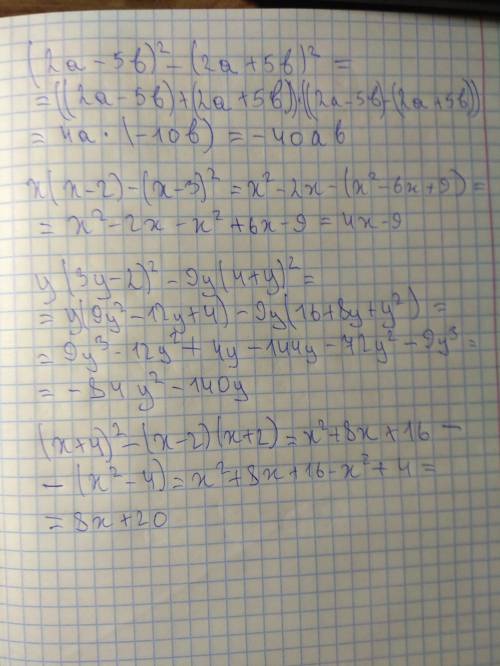 (2a-5b)²-(2a+5b)²=
=((2a-5b)+(2a+5b))·((2a-5b)-(2a+5b))
=4a·(-10b)=-40ab
x(x-2)-(x-3)²=x²-2x-(x²-6x+9)=
=x²-2x-x²+6x-9=4x-9
y(3y-2)²-9y(4+y)²=
=y(9y²-12y+4)-9y(16+8y+y²)=
=9y³-12y²+4y-144y-72y²-9y³=
=-84y²-140y
(x+4)²-(x-2)(x+2)=x²+8x+16-
-(x²-4)=x²+8x+16-x²+4=
=8x+20